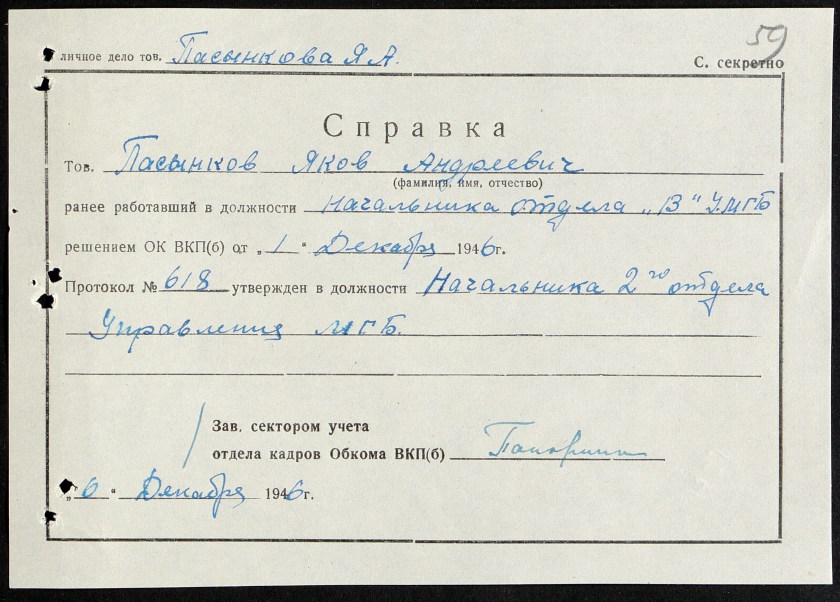 59
личное дело тов. Пасынкова Я А.
С. секретно
Справка
Тов. Пасынков Яков Андреевич
(фамилия, имя, отчество)
ранее работавший в должности Начальника отдела „В“ УМГБ
решением ОК ВКП(б) от „1“ Декабря 1946г.
Протокол № 618 утвержден в должности Начальника 2го отдела
Управления МГБ.
Зав. сектором учета
отдела кадров Обкома ВКП(б)
„6“ Декабря 1946г.